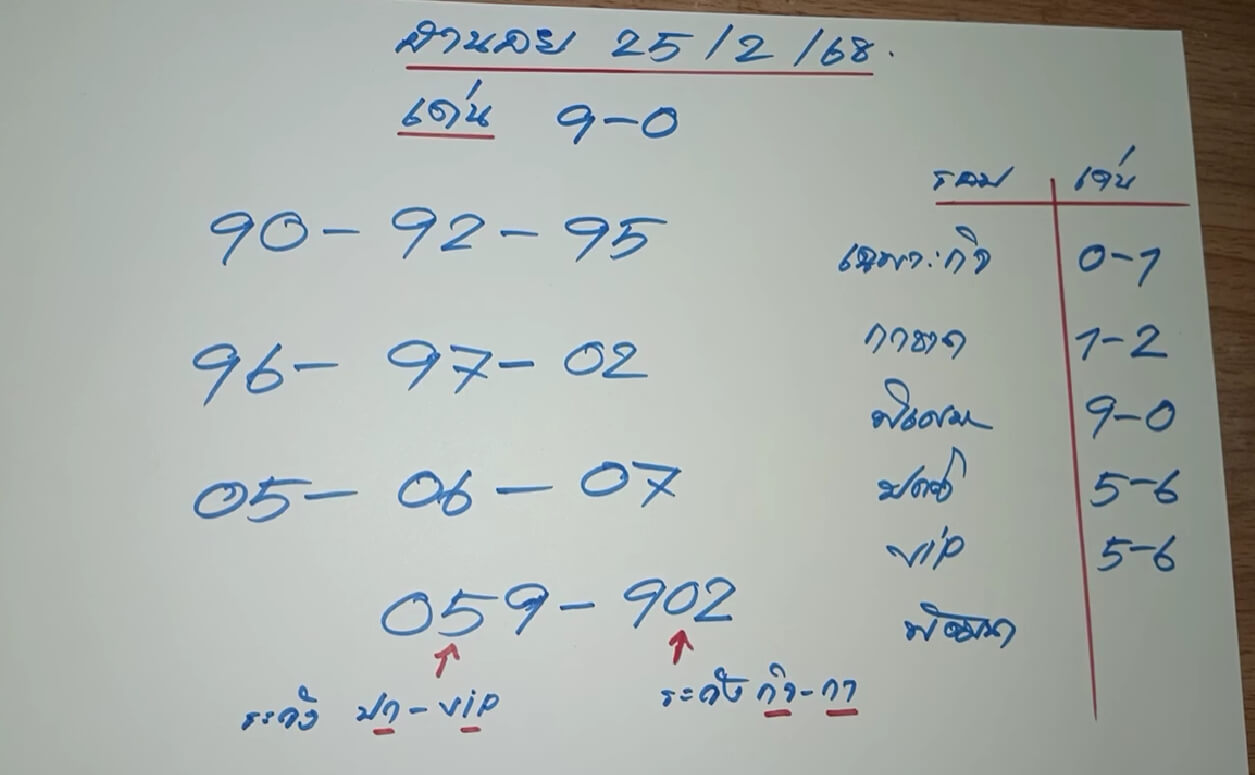 ฮานอย 25/2/68.
เด่น 9-0
90 - 92 - 95
96 - 97 - 02
05 - 06 - 07
059 - 902
ระวัง ปก - vip
ระวัง กิจ - กา
รอบ เด่น
เฉพาะกิจ 0-1
กาชาด 1-2
พิเศษ 9-0
ปกติ 5-6
vip 5-6
พัฒนา